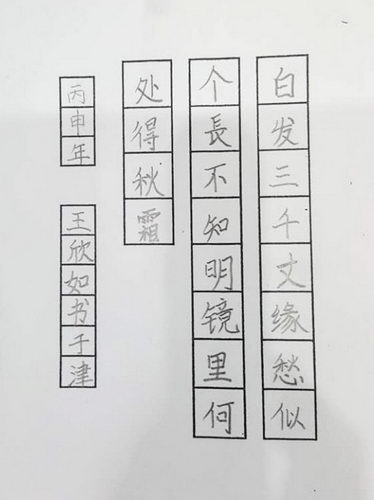 白发三千丈缘愁似
个長不知明镜里何
处得秋霜
丙申年
王欣如书于津